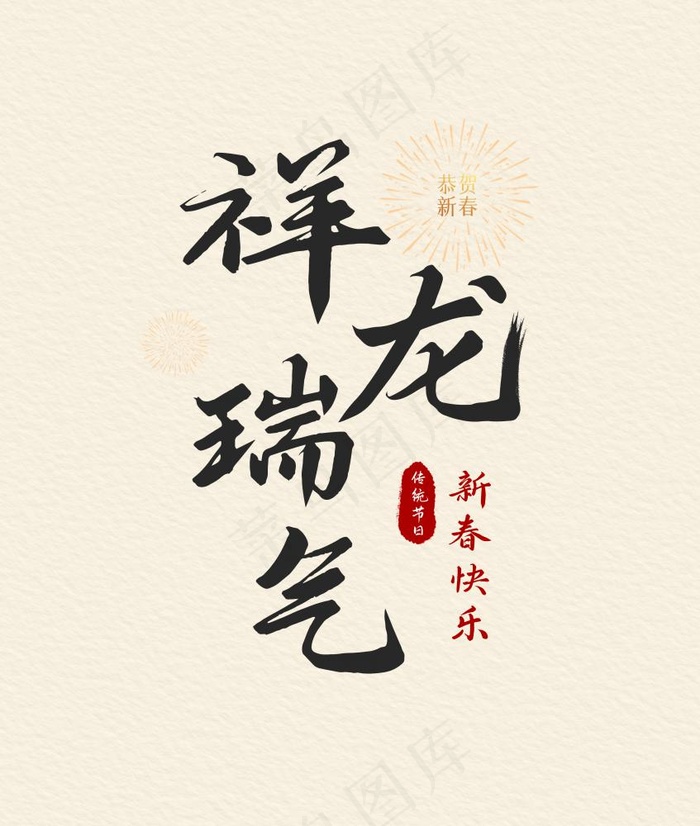 祥龙瑞气
恭贺
新春
传统节日
新春快乐
图库
图库